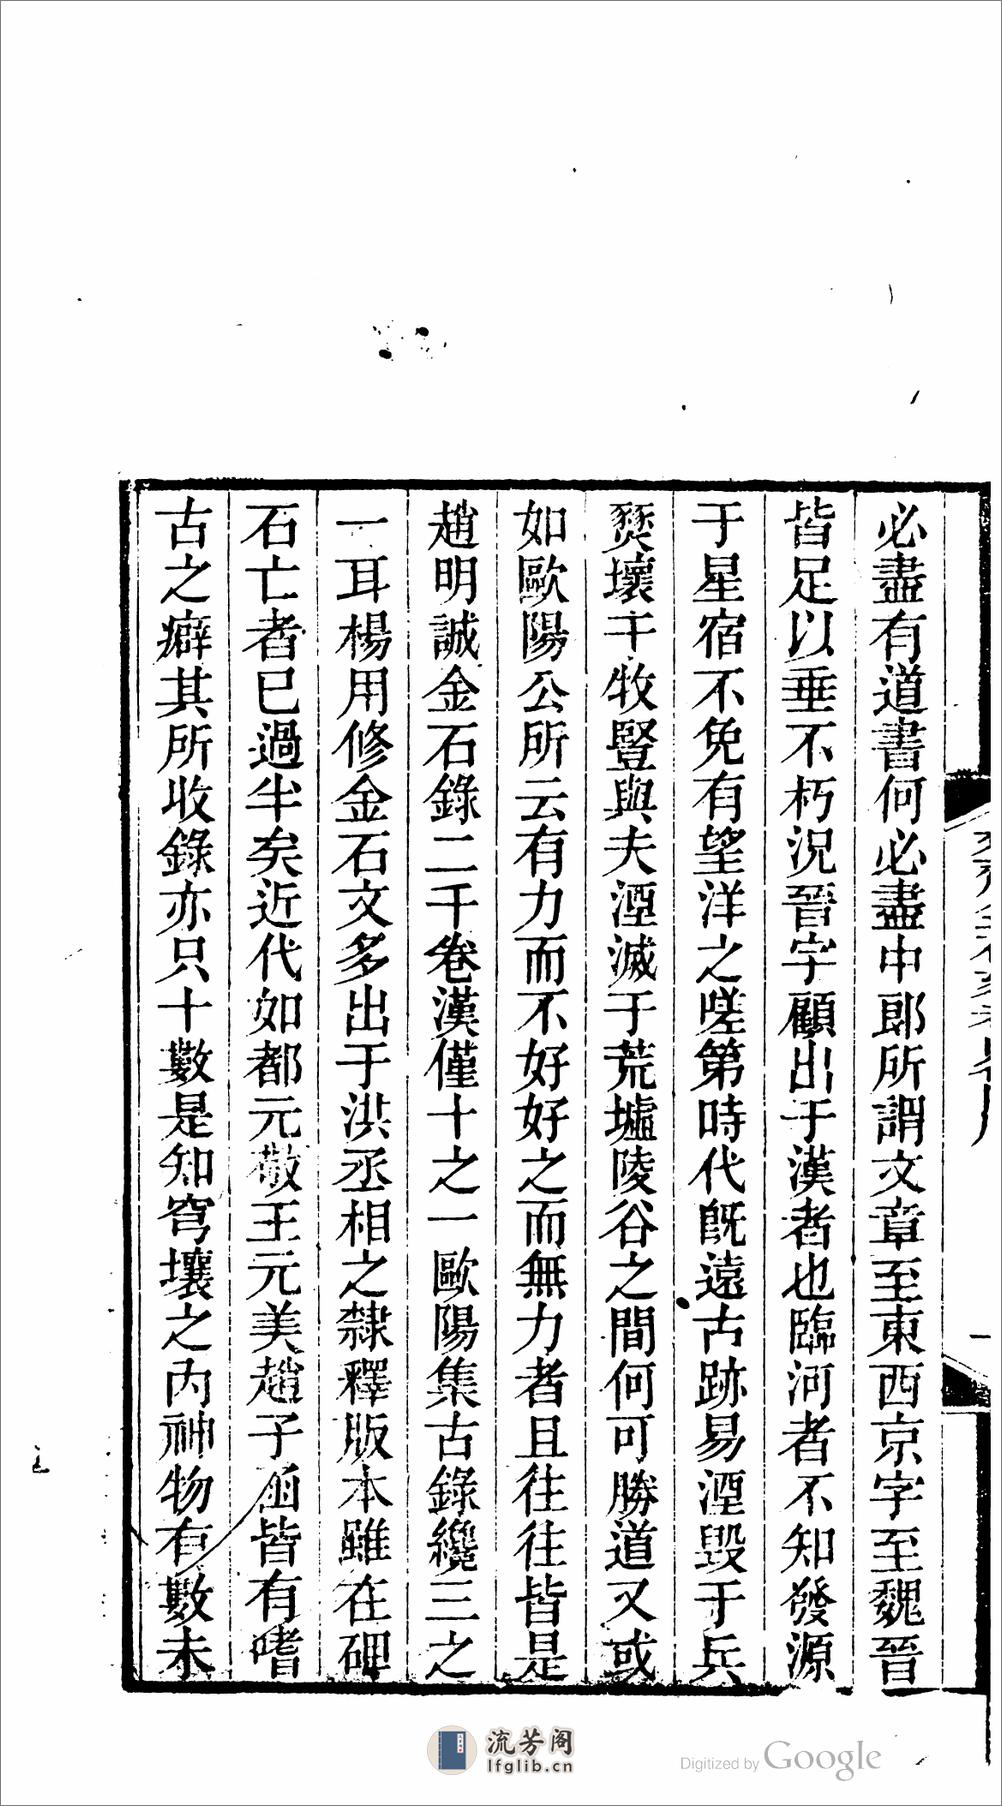 必盡有道書何必盡中郎所謂文章至東西京字至魏晉
皆足以垂不朽況晉字顧出于漢者也臨河者不知發源
于星宿不免有望洋之嗟第時代旣遠古跡易湮毀于兵
燹壞于牧豎與夫湮滅于荒墟陵谷之間何可勝道又或
如歐陽公所云有力而不好好之而無力者且往往皆是
趙明誠金石錄二千卷漢僅十之一歐陽集古錄纔三之
一耳楊用修金石文多出于洪丞相之隸釋版本雖在碑
石亡者已過半矣近代如都元敬王元美趙子函皆有嗜
古之癖其所收錄亦只十數是知穹壤之內神物有數未
流芳阁
lfglib.cn
Digitized by Google